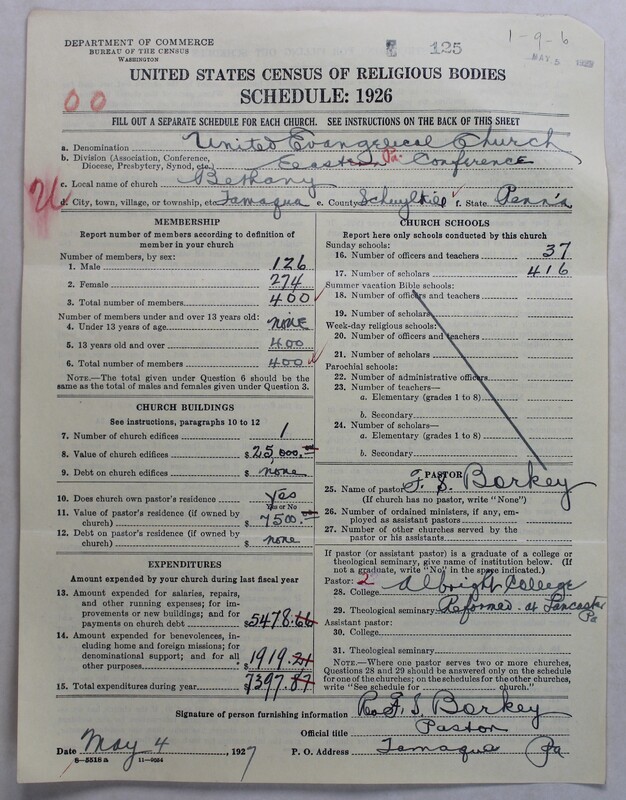 DEPARTMENT OF COMMERCE
BUREAU OF THE CENSUS
WASHINGTON
125
1-9-6
MAY 5
UNITED STATES CENSUS OF RELIGIOUS BODIES
SCHEDULE: 1926
00
FILL OUT A SEPARATE SCHEDULE FOR EACH CHURCH. SEE INSTRUCTIONS ON THE BACK OF THIS SHEET
a. Denomination United Evangelical Church
b. Division (Association, Conference, Diocese, Presbytery, Synod, etc.) Eastern Pa. Conference
c. Local name of church Bethany
d. City, town, village, or township, etc Tamaqua e. County Schuylkill f. State Penn'a
MEMBERSHIP
Report number of members according to definition of member in your church
Number of members, by sex:
1. Male 126
2. Female 274
3. Total number of members 400
Number of members under and over 13 years old:
4. Under 13 years of age none
5. 13 years old and over 400
6. Total number of members 400
NOTE.—The total given under Question 6 should be the same as the total of males and females given under Question 3.
CHURCH BUILDINGS
See instructions, paragraphs 10 to 12
7. Number of church edifices 1
8. Value of church edifices $25,000.
9. Debt on church edifices $ none
10. Does church own pastor's residence yes
Yes or No
11. Value of pastor's residence (if owned by church) $ 7500.
12. Debt on pastor's residence (if owned by church) $ none
EXPENDITURES
Amount expended by your church during last fiscal year
13. Amount expended for salaries, repairs, and other running expenses; for improvements or new buildings; and for payments on church debt $5478.66
14. Amount expended for benevolences, including home and foreign missions; for denominational support; and for all other purposes $1919.21
15. Total expenditures during year $7397.87
CHURCH SCHOOLS
Report here only schools conducted by this church
Sunday schools:
16. Number of officers and teachers 37
17. Number of scholars 416
Summer vacation Bible schools:
18. Number of officers and teachers
19. Number of scholars
Week-day religious schools:
20. Number of officers and teachers
21. Number of scholars
Parochial schools:
22. Number of administrative officers
23. Number of teachers—
a. Elementary (grades 1 to 8)
b. Secondary
24. Number of scholars—
a. Elementary (grades 1 to 8)
b. Secondary
PASTOR
25. Name of pastor F. S. Borkey
(If church has no pastor, write "None")
26. Number of ordained ministers, if any, employed as assistant pastors
27. Number of other churches served by the pastor or his assistants
If pastor (or assistant pastor) is a graduate of a college or theological seminary, give name of institution below. (If not a graduate, write "No" in the space indicated.)
Pastor: 2
28. College Albright College
29. Theological seminary Reformed at Lancaster Pa
Assistant pastor:
30. College
31. Theological seminary
NOTE.—Where one pastor serves two or more churches, Questions 28 and 29 should be answered only on the schedule for one of the churches; on the schedules for the other churches, write "See schedule for church."
Signature of person furnishing information Rev F. S. Borkey
Official title Pastor
Date May 4, 1927 P. O. Address Tamaqua Pa
8—5516a 11—9554